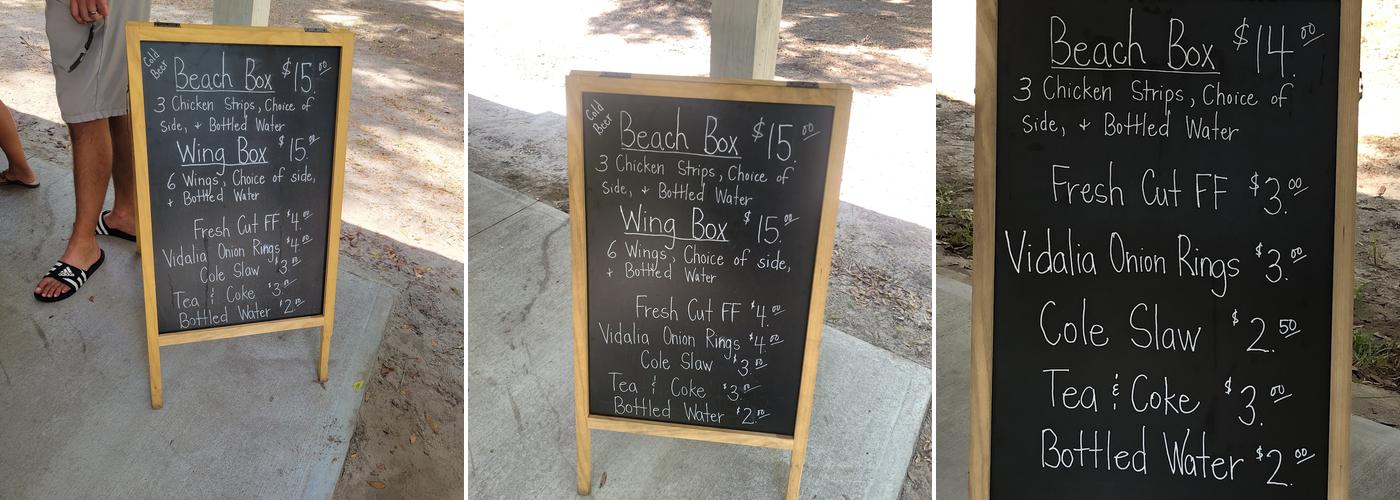 Cold
Beer
Beach Box $15.00
3 Chicken Strips, Choice of
side, + Bottled Water
Wing Box $15.00
6 Wings, Choice of side,
+ Bottled Water
Fresh Cut FF $4.00
Vidalia Onion Rings $4.00
Cole Slaw $3.00
Tea & Coke $3.00
Bottled Water $2.00
adidas
Cold
Beer
Beach Box $15.00
3 Chicken Strips, Choice of
side, + Bottled Water
Wing Box $15.00
6 Wings, Choice of side,
+ Bottled Water
Fresh Cut FF $4.00
Vidalia Onion Rings $4.00
Cole Slaw $3.00
Tea & Coke $3.00
Bottled Water $2.00
Beach Box $14.00
3 Chicken Strips, Choice of
side, + Bottled Water
Fresh Cut FF $3.00
Vidalia Onion Rings $3.00
Cole Slaw $2.50
Tea & Coke $3.00
Bottled Water $2.00